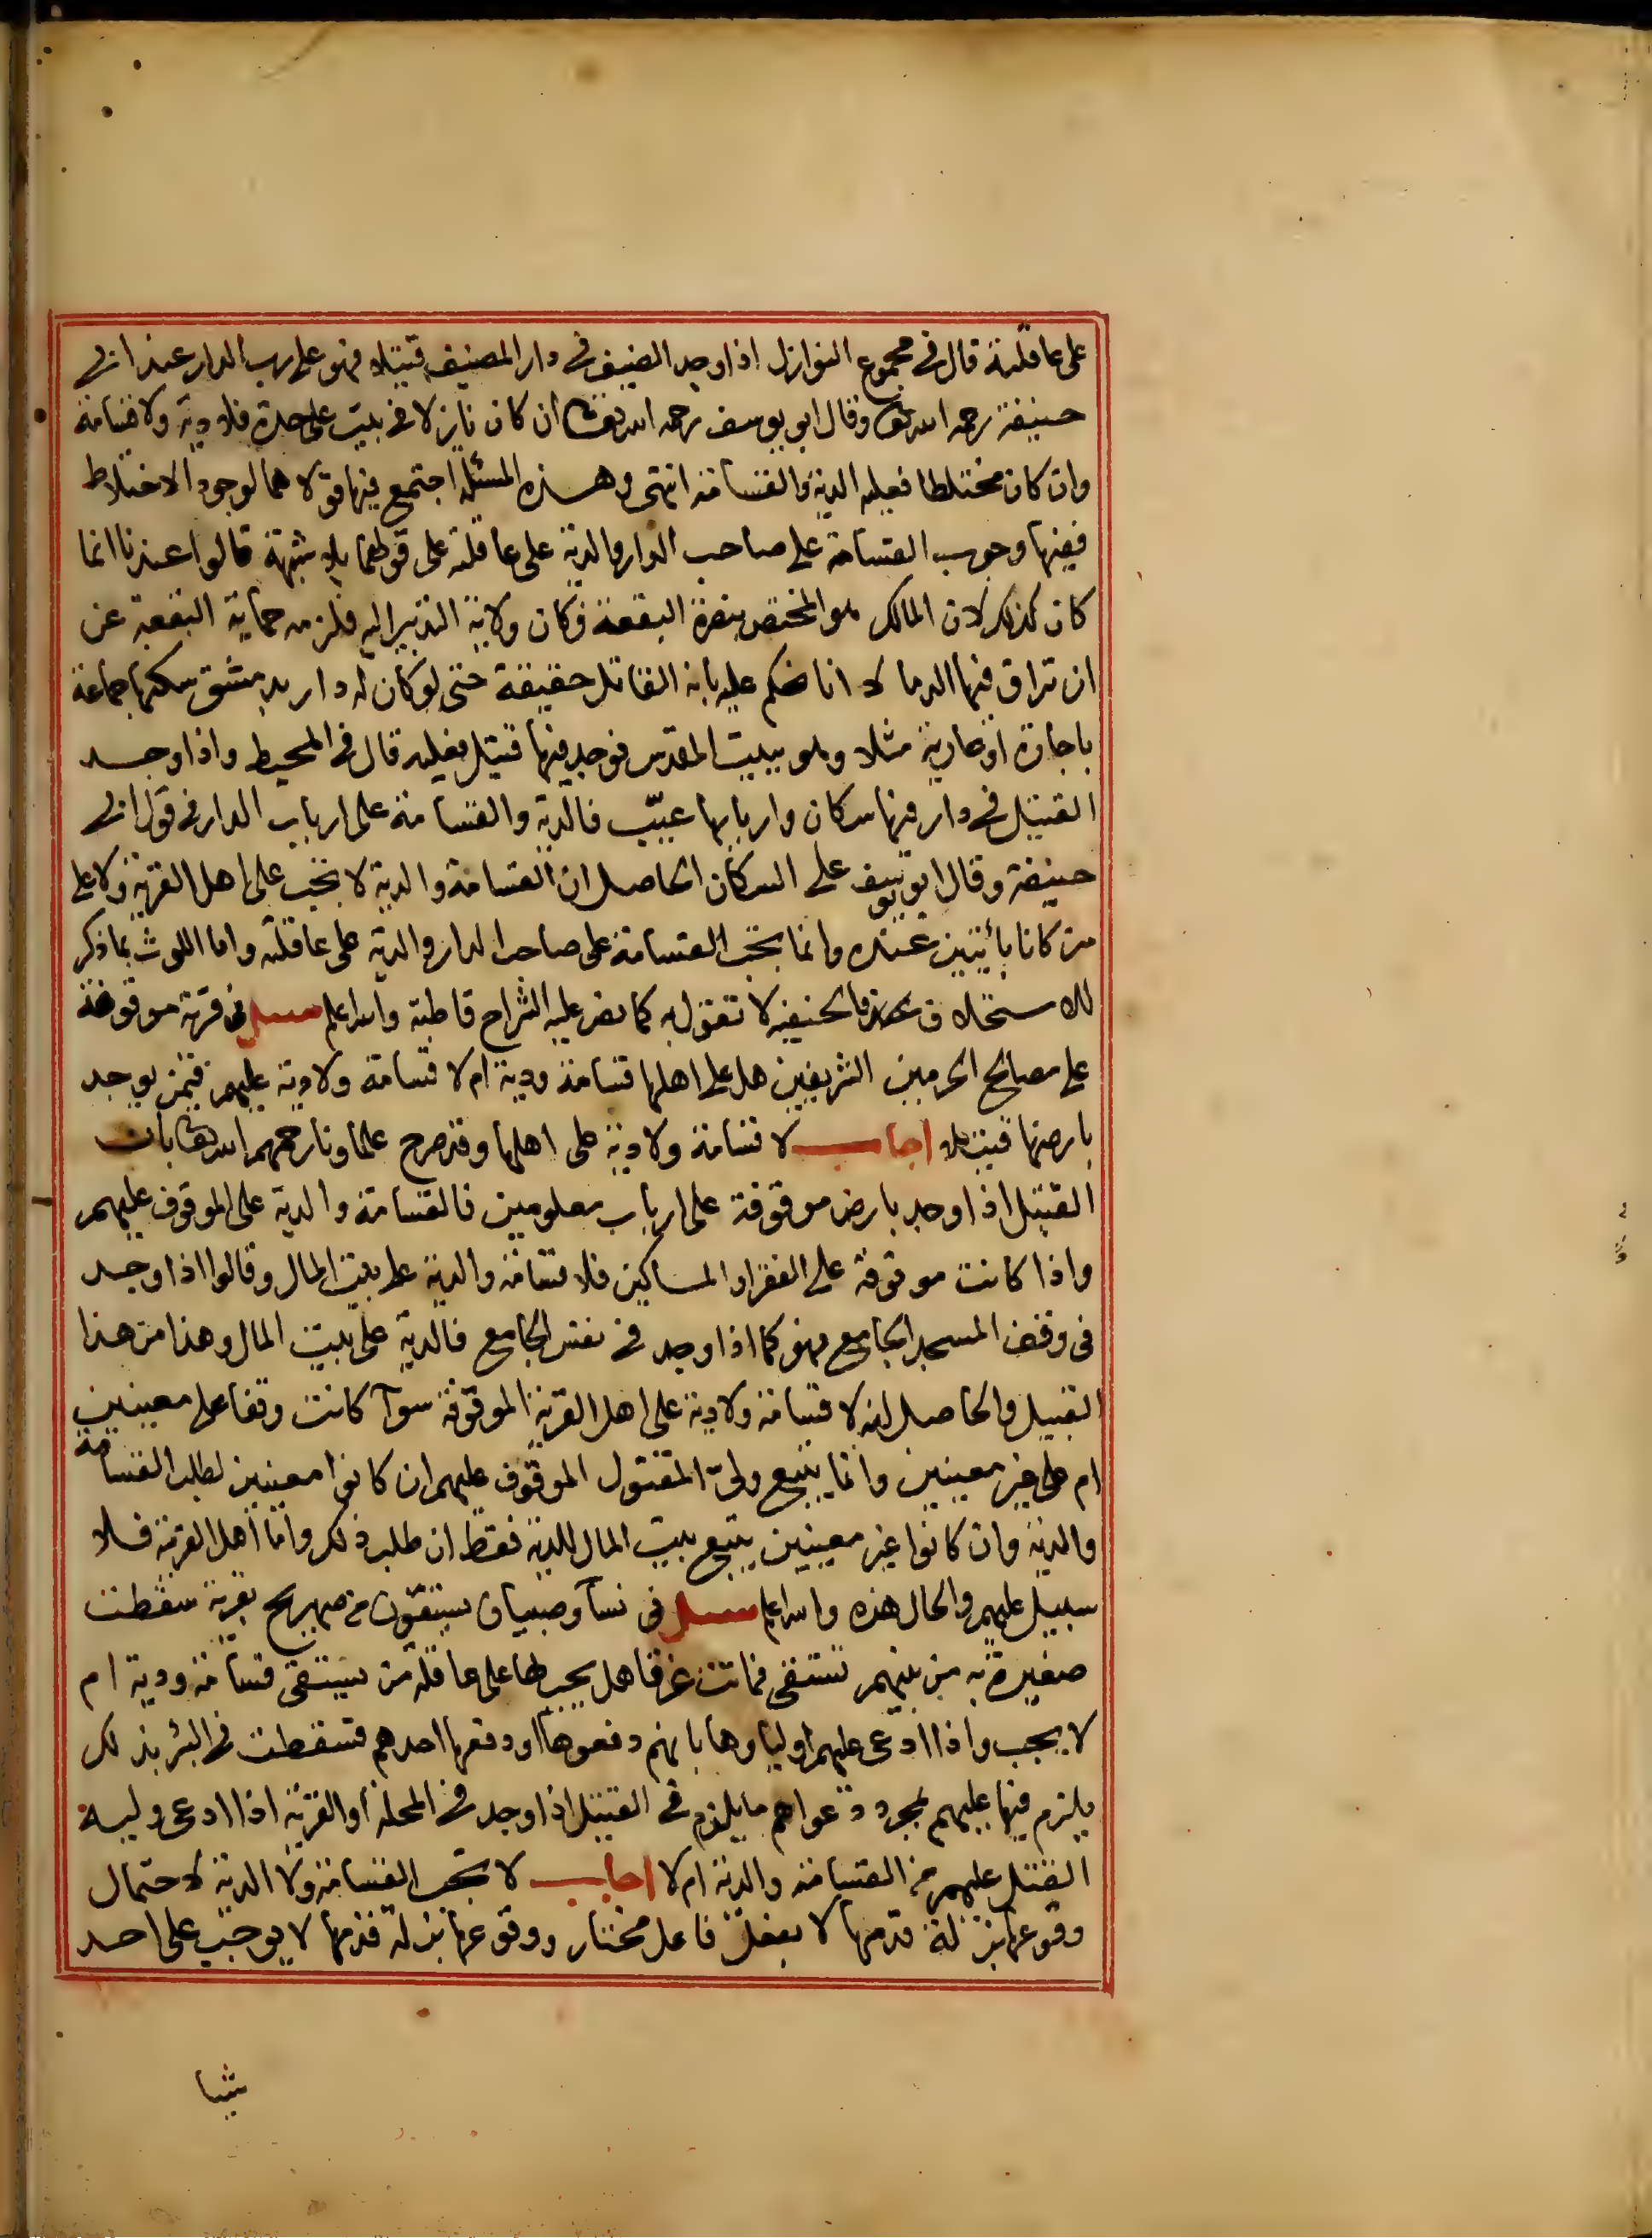 على عاقلته قال في مجموع النوازل اذا وجد الضيف في دار المضيف قتيلا فهو على رب الدار عند ابي
حنيفة رحمه الله تعالى وقال ابو يوسف رحمه الله تعالى ان كان نازلا في بيت على حدة فلا دية ولا قسامة
وان كان مختلطا فعليه الدية والقسامة انتهى وهذه المسئلة اجتمع فيها قولاهما لوجود الاختلاط
ففيها وجوب القسامة على صاحب الدار والدية على عاقلته على قولهما بلا شبهة قالوا عندنا انما
كان كذلك لان المالك هو المختص بنصرة البقعة فكان ولاية التدبير اليه فلزمه حماية البقعة عن
ان تراق فيها الدما لا انا نحكم عليه بانه القاتل حقيقة حتى لو كان له دار بدمشق سكنها جماعة
باجارة او عارية مثلا وهو ببيت المقدس فوجد فيها قتيل فعليه قال في المحيط واذا وجد
القتيل في دار فيها سكان واربابها غيب فالدية والقسامة على ارباب الدار في قول ابي
حنيفة وقال ابو يوسف على السكان الحاصل ان القسامة والدية لا تجب على اهل القرية ولا على
من كانا بائتين عنده وانما تجب القسامة على صاحب الدار والدية على عاقلته واما اللوث بما ذكر
للاستحلاف فالحنفية لا تقول به كما نص عليه الشراح قاطبة والله اعلم سئل في قرية موقوفة
على مصالح الحرمين الشريفين هل على اهلها قسامة ودية ام لا قسامة ولا دية عليهم فيمن يوجد
بارضها قتيلا اجاب لا قسامة ولا دية على اهلها وقد صرح علماونا رحمهم الله تعالى بان
القتيل اذا وجد بارض موقوفة على ارباب معلومين فالقسامة والدية على الموقوف عليهم
واذا كانت موقوفة على الفقرا والمساكين فلا قسامة والدية على بيت المال وقالوا اذا وجد
في وقف المسجد الجامع فهو كما اذا وجد في نفس الجامع فالدية على بيت المال وهذا من هذا
القبيل والحاصل انه لا قسامة ولا دية على اهل القرية الموقوفة سوآ كانت وقفا على معينين
ام على غير معينين وانما يتبع ولي المقتول الموقوف عليهم ان كانوا معينين لطلب القسامة
والدية وان كانوا غير معينين يتبع بيت المال للدية فقط ان طلب ذلك واما اهل القرية فلا
سبيل عليهم والحال هذه والله اعلم سئل في نسآ وصبيان يستقون من صهريج بقرية سقطت
صغيرة به من بينهم تستقي فماتت غرقا هل يجب لها على عاقلة من يستقي قسامة ودية ام
لا يجب واذا ادعى عليهم اولياوها بانهم دفعوها او دفعها احدهم فسقطت في البئر بذلك
يلزم فيها عليهم بمجرد دعواهم ما يلزم في القتيل اذا وجد في المحلة او القرية اذا ادعى وليه
القتل عليهم من القسامة والدية ام لا اجاب لا تجب القسامة ولا الدية لاحتمال
وقوعها بزلة قدمها لا بفعل فاعل مختار ووقوعها بزلة قدمها لا يوجب على احد
شيا